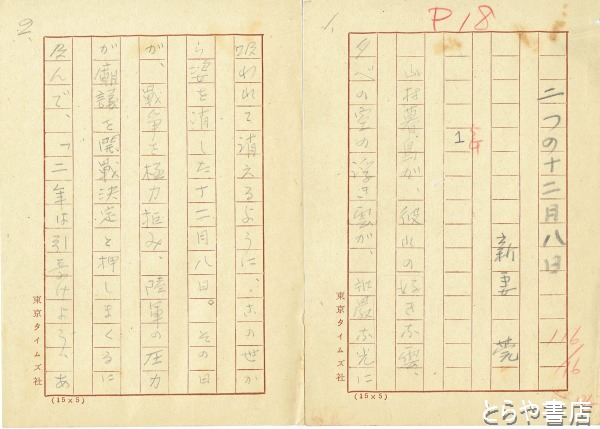 P18
1.
二つの十二月八日
新妻 莞
1
山村暮鳥が、彼の好きな雲、
夕べの空の浮き雲が、荘厳な光に
116
116
東京タイムズ社
(15×5)
2.
吸われて消えるように、この世か
ら姿を消した十二月八日。その日
が、戦争を極力拒み、陸軍の圧力
が廟議を開戦決定と押しまくるに
及んで、「二年は引受けよう。あ
東京タイムズ社
(15×5)
とらや書店